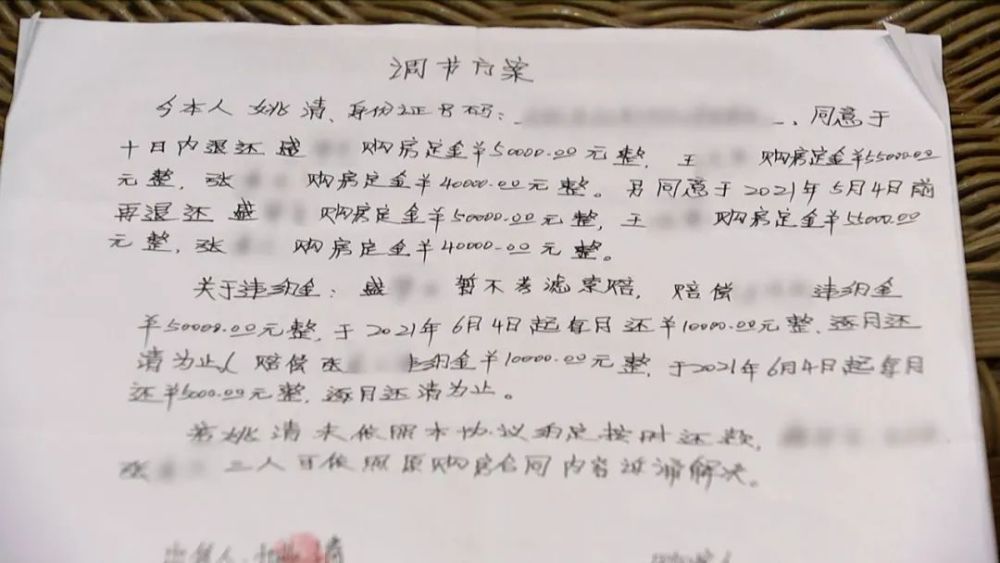 调节方案
今本人姚清、身份证号码：、同意于
十日内退还盛 购房定金￥50000.00元整，王 购房定金￥55000.00
元整，张 购房定金￥40000.00元整。另同意于2021年5月4日前
再退还盛 购房定金￥50000.00元整，王 购房定金￥55000.00
元整，张 购房定金￥40000.00元整。
关于违约金：盛 暂不考滤索赔，赔偿 违约金
￥50000.00元整，于2021年6月4日起每月还￥10000.00元整，逐月还
清为止（赔偿张 违约金￥10000.00元整，于2021年6月4日起每月
还￥5000.00元整，逐月还清为止。
若姚清未依照本协议约定按时还款，
张 三人可依照原购房合同内容诉讼解决。